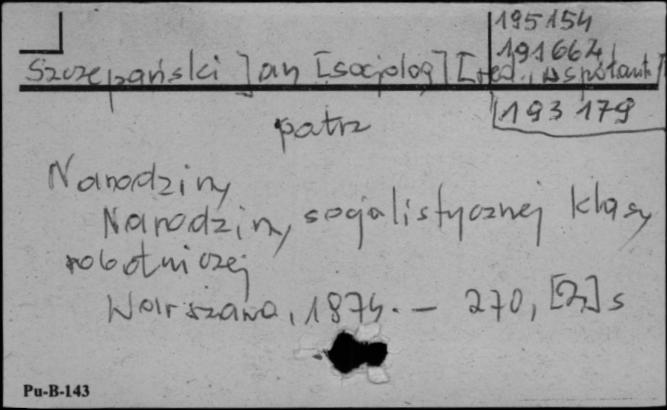 195154
191664
Szczepański Jan [socjolog] [red., współaut.]
193179
patrz
Narodziny
Narodziny socjalistycznej klasy
robotniczej
Warszawa, 1974. — 270, [2] s
Pu-B-143